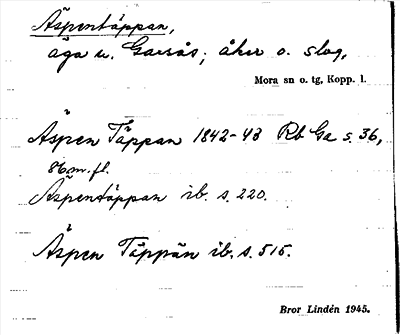 Äspentäppan,
äga u. Garsås; åker o. slog,
Mora sn o. tg, Kopp. l.
Äspen Täppan 1842-43 Rb Ga s. 36,
86 m. fl.
Äspentäppan ib. s. 220.
Äspen Täppan ib. s. 515.
Bror Lindén 1945.